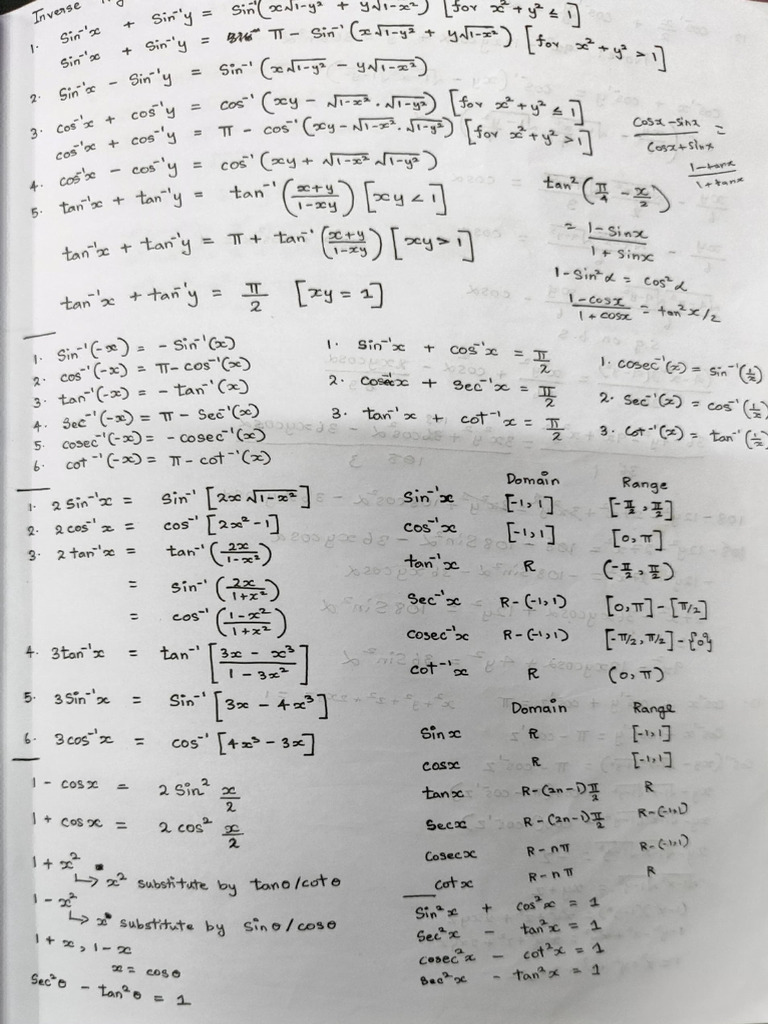 Inverse
1. Sin⁻¹x + Sin⁻¹y = Sin⁻¹(x√1-y² + y√1-x²) [for x² + y² ≤ 1]
Sin⁻¹x + Sin⁻¹y = π - Sin⁻¹(x√1-y² + y√1-x²) [for x² + y² > 1]
2. Sin⁻¹x - Sin⁻¹y = Sin⁻¹(x√1-y² - y√1-x²)
3. cos⁻¹x + cos⁻¹y = cos⁻¹(xy - √1-x² . √1-y²) [for x² + y² ≤ 1]
cos⁻¹x + cos⁻¹y = π - cos⁻¹(xy - √1-x² . √1-y²) [for x² + y² > 1]
4. cos⁻¹x - cos⁻¹y = cos⁻¹(xy + √1-x² √1-y²)
5. tan⁻¹x + tan⁻¹y = tan⁻¹((x+y)/(1-xy)) [xy < 1]
tan⁻¹x + tan⁻¹y = π + tan⁻¹((x+y)/(1-xy)) [xy > 1]
tan⁻¹x + tan⁻¹y = π/2 [xy = 1]
(cosx - sinx)/(cosx + sinx) =
(1-tanx)/(1+tanx)
tan²(π/4 - x/2)
= (1-sinx)/(1+sinx)
1-Sin²α = cos²α
(1-cosx)/(1+cosx) = tan²x/2
1. Sin⁻¹(-x) = - Sin⁻¹(x)
2. cos⁻¹(-x) = π - cos⁻¹(x)
3. tan⁻¹(-x) = - tan⁻¹(x)
4. Sec⁻¹(-x) = π - Sec⁻¹(x)
5. cosec⁻¹(-x) = -cosec⁻¹(x)
6. cot⁻¹(-x) = π - cot⁻¹(x)
1. Sin⁻¹x + cos⁻¹x = π/2
2. cosec⁻¹x + sec⁻¹x = π/2
3. tan⁻¹x + cot⁻¹x = π/2
1. cosec⁻¹(x) = sin⁻¹(1/x)
2. Sec⁻¹(x) = cos⁻¹(1/x)
3. Cot⁻¹(x) = tan⁻¹(1/x)
1. 2 Sin⁻¹x = Sin⁻¹[2x√1-x²]
2. 2cos⁻¹x = cos⁻¹[2x²-1]
3. 2 tan⁻¹x = tan⁻¹(2x/(1-x²))
= sin⁻¹(2x/(1+x²))
= cos⁻¹((1-x²)/(1+x²))
4. 3tan⁻¹x = tan⁻¹[(3x - x³)/(1 - 3x²)]
5. 3Sin⁻¹x = Sin⁻¹[3x - 4x³]
6. 3cos⁻¹x = cos⁻¹[4x³ - 3x]
Domain Range
Sin⁻¹x [-1,1] [-π/2, π/2]
cos⁻¹x [-1,1] [0, π]
tan⁻¹x R (-π/2, π/2)
Sec⁻¹x R-(-1,1) [0,π]-[π/2]
cosec⁻¹x R-(-1,1) [-π/2, π/2]-{0}
cot⁻¹x R (0, π)
Domain Range
Sinx R [-1,1]
cosx R [-1,1]
tanx R-(2n-1)π/2 R
Secx R-(2n-1)π/2 R-(-1,1)
Cosecx R-nπ R-(-1,1)
cotx R-nπ R
1 - cosx = 2 Sin² x/2
1 + cosx = 2 cos² x/2
1 + x²
↳ x² substitute by tanθ/cotθ
1 - x²
↳ x² substitute by sinθ/cosθ
1+x, 1-x
x = cosθ
Sec²θ - tan²θ = 1
Sin²x + cos²x = 1
Sec²x - tan²x = 1
cosec²x - cot²x = 1
Sec²x - tan²x = 1